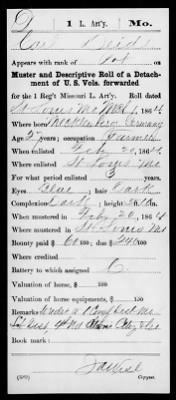 D 1 L. Art'y. Mo.
Appears with rank of Pvt on
Muster and Descriptive Roll of a Detach-
ment of U. S. Vols. forwarded
for the 1 Reg't Missouri L. Art'y. Roll dated
St Louis Mo 1864
Where born Mecklenburg Germany
Age y'rs; occupation Farmer
When enlisted Feby 20, 1864
Where enlisted St Louis Mo
For what period enlisted 3 years
Eyes Blue; hair Dark
Complexion Dark; height ft. in.
When mustered in Feby 20, 1864
Where mustered in St Louis Mo
Bounty paid $ 60 100; due $ 240 100
Where credited
Battery to which assigned C
Valuation of horse, $ 100
Valuation of horse equipments, $ 100
Remarks:
Book mark:
Copyist.